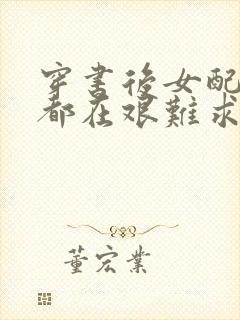 穿書後女配
都在艰難求
董宏業